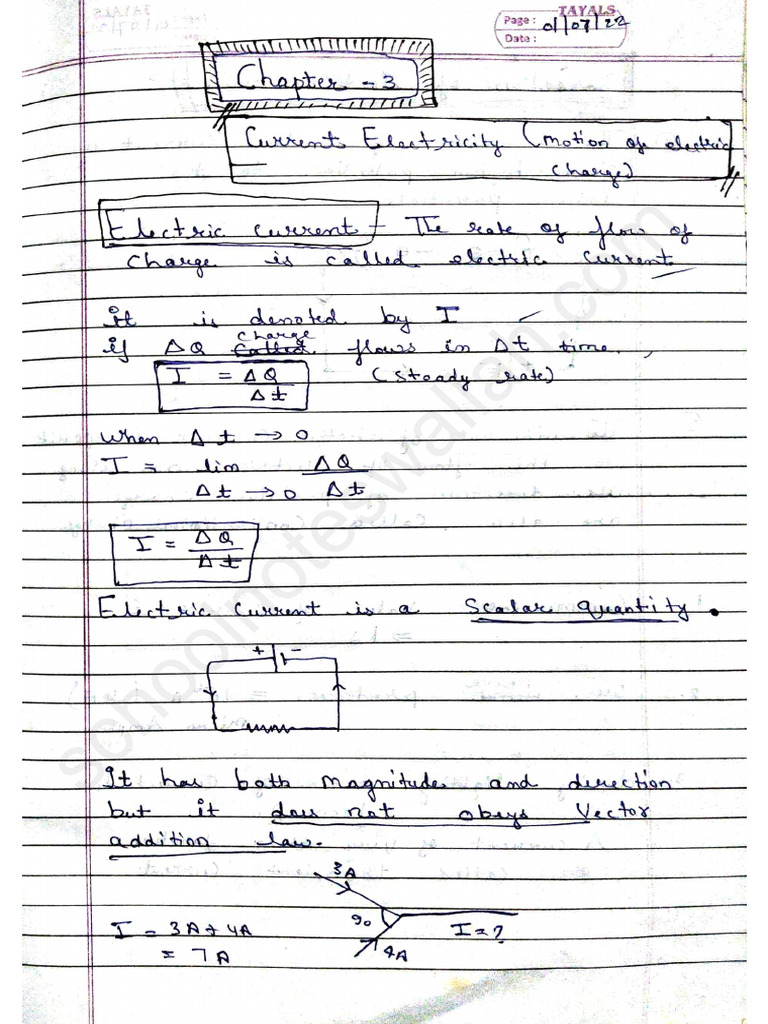 TAYALS
Page: 01/07/22
Date:
Chapter - 3
Current Electricity (motion of electric
charge)
Electric current - The rate of flow of
charge is called electric current
it is denoted by I
charge
if ΔQ called flows in Δt time,
I = ΔQ/Δt (steady rate)
when Δt → 0
I = lim ΔQ
Δt → 0 Δt
I = ΔQ/Δt
Electric current is a Scalar quantity.
+ -
It has both magnitude and direction
but it does not obeys Vector
addition law.
3A
I = 3A + 4A 90 I = ?
= 7A 4A
schoolnoteswallah.com